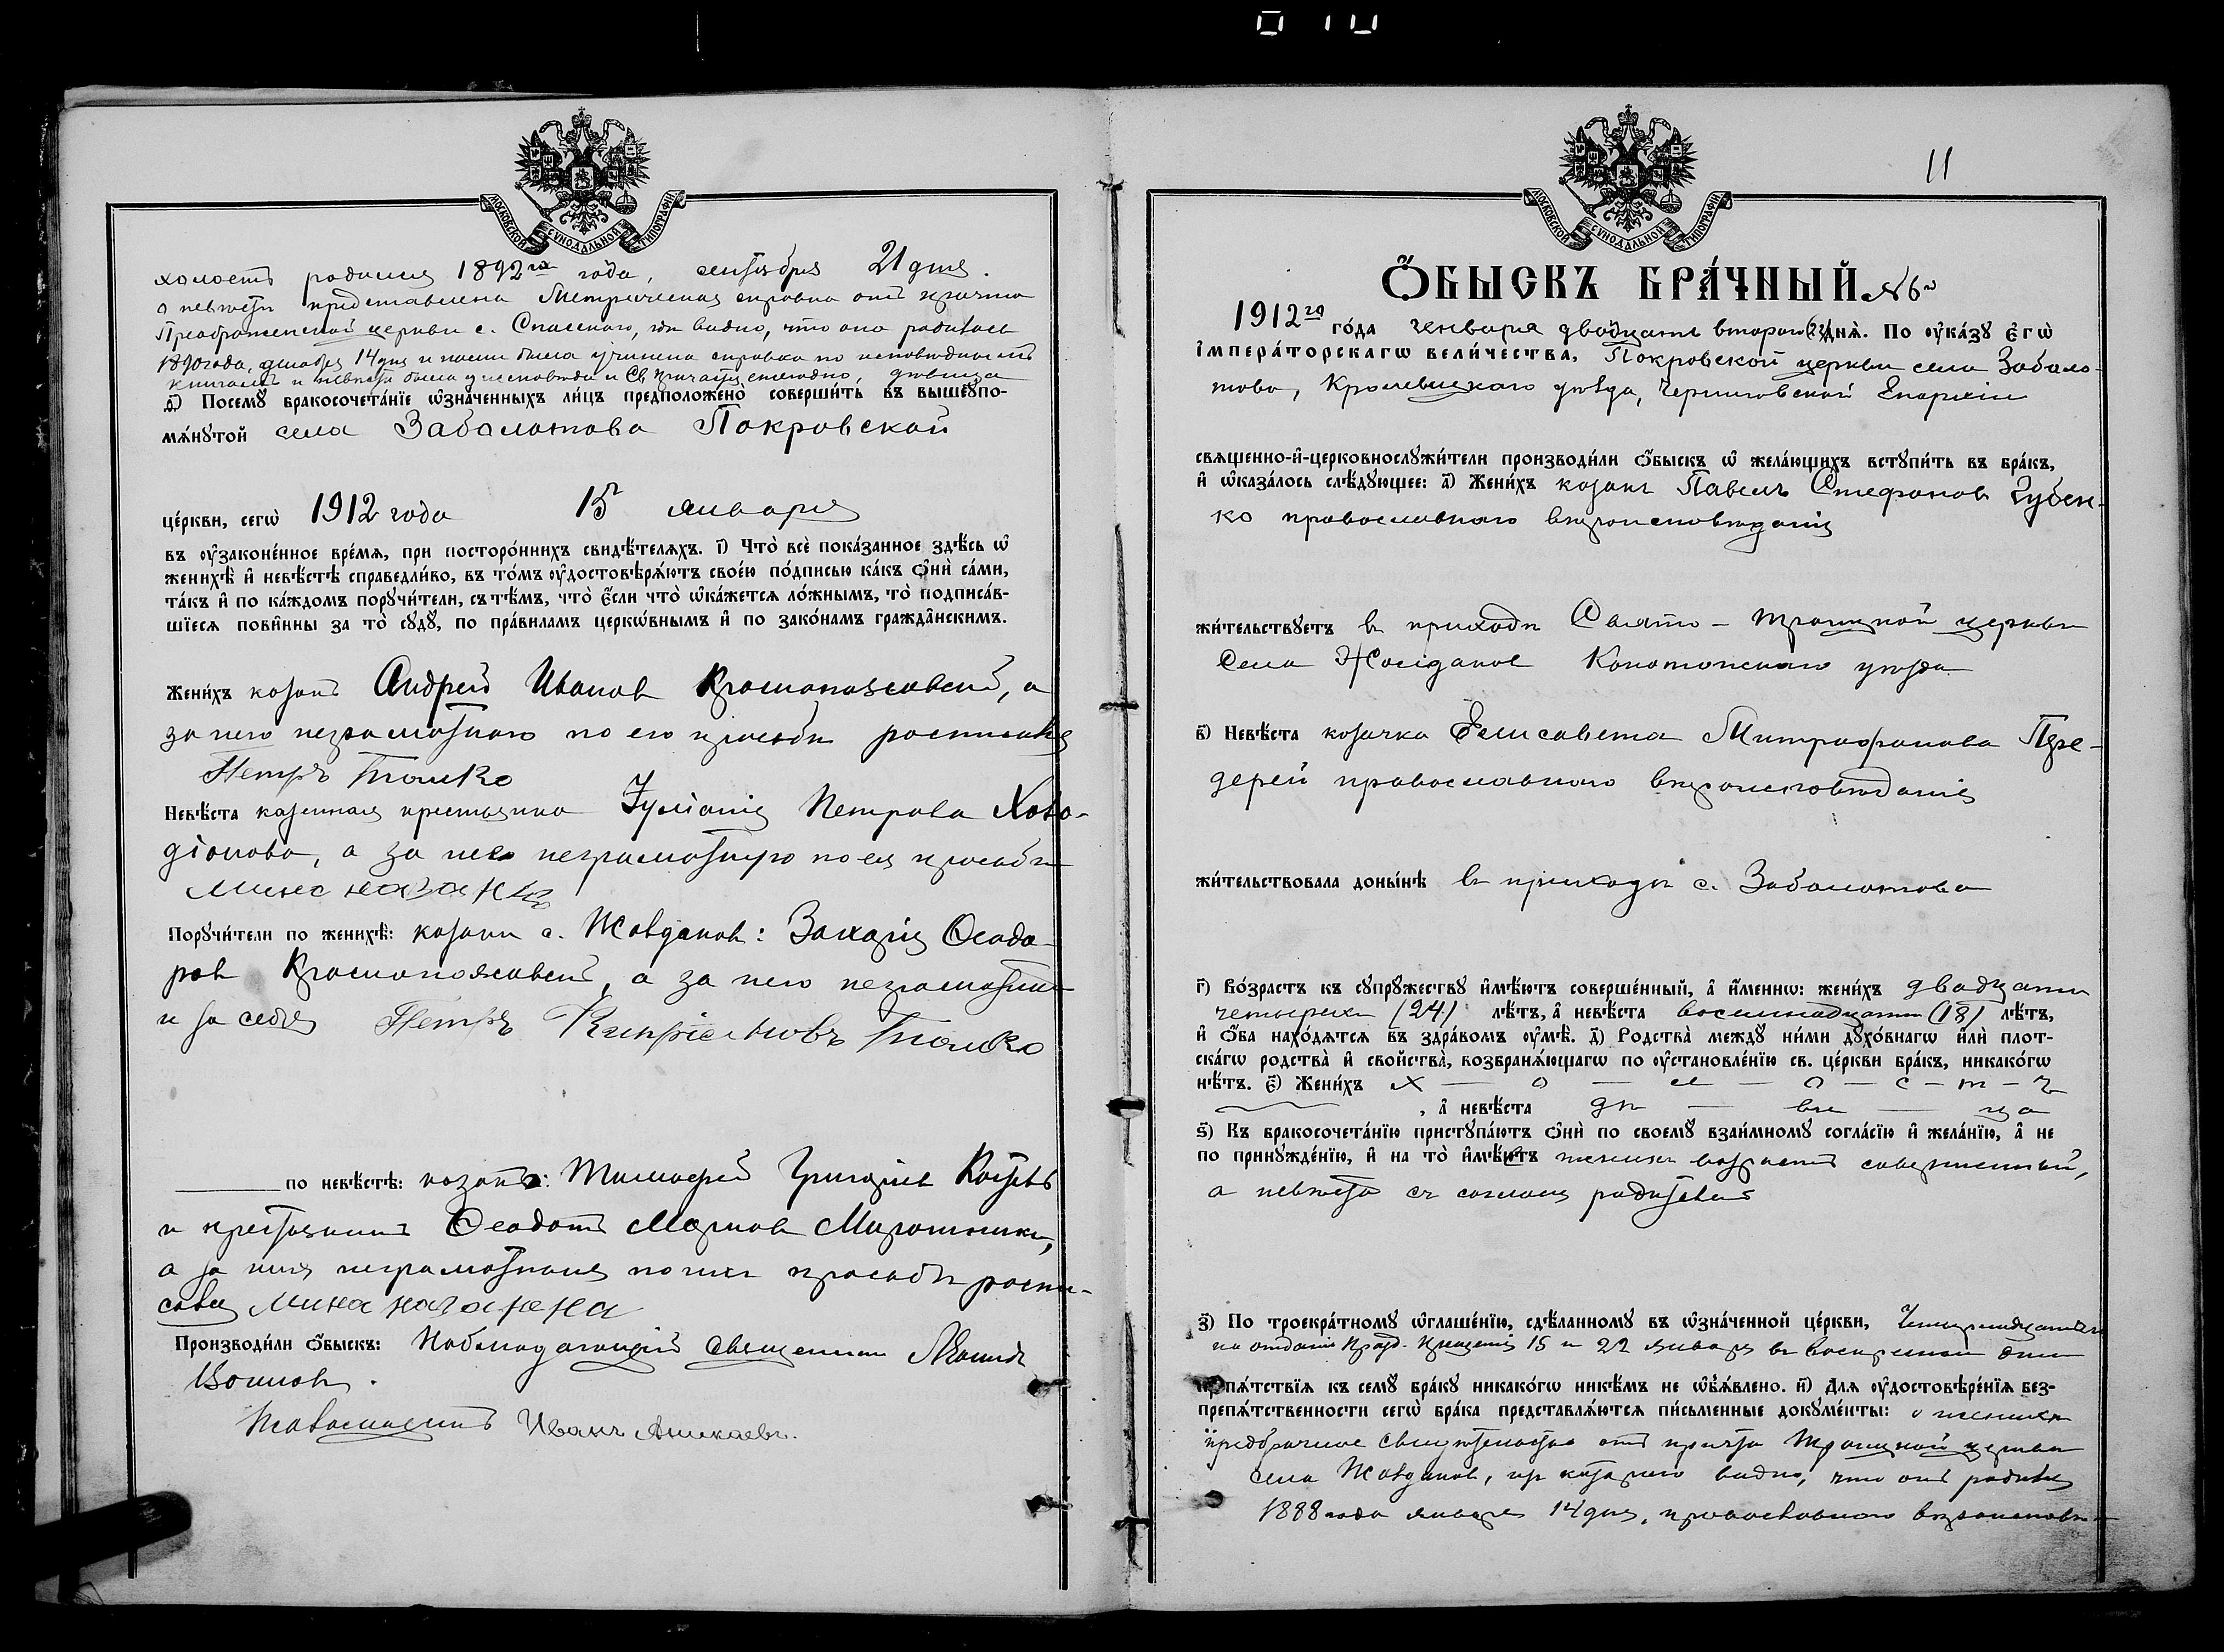 МОСКОВСКОЙ СѴНОДАЛЬНОЙ ТИПОГРАФІИ
холостъ родился 1892го года, сентября 21 дня.
о невѣстѣ представлена Метрическая справка отъ причта
Преображенской церкви с. Спасскаго, гдѣ видно, что она родилась
1890 года, декабря 14 дня и нами была учинена справка по исповѣднымъ
книгамъ и невѣста была у исповѣди и Св. Причастія ежегодно, дѣвица
д҃) Посемꙋ̀ бракосочета́нїе ѡзна́ченныхъ ли́цъ предположено̀ соверши́ть въ вышеꙋпо-
мѧ́нꙋтой села Заболотова Покровской
це́ркви, сегѡ̀ 1912 года 15 января
въ ᲂу҆законе́нное вре́мѧ, при посторо́ннихъ свидѣ́телѧхъ. і҃) Что̀ всѐ пока́занное здѣ́сь ѡ҆
женихѣ̀ и҆ невѣ́стѣ справедли́во, въ то́мъ ᲂу҆достовѣрѧ́ютъ свое́ю по́дписью ка́къ ѻ҆нѝ са́ми,
та́къ и҆ по ка́ждомъ порꙋчи́тели, съ тѣ́мъ, что̀ є҆́сли что̀ ѡ҆ка́жетсѧ ло́жнымъ, то̀ подписа́в-
шїесѧ пови́нны за то̀ сꙋдꙋ̀, по пра́виламъ церкѡ́внымъ и҆ по зако́намъ гражда́нскимъ.
Жени́хъ козакъ Андрей Иванов Красноножовскій, а
за него неграмотнаго по его просьбѣ росписался
Петръ Тошко
Невѣ́ста казенная крестьянка Іуліанія Петрова Ховр-
діонова, а за нею неграмотную по ея просьбѣ
Мина
Порꙋчи́тели по женихѣ̀: козаки с. Жовдаков: Захарія Ѳеодо-
ров Красноножовскій, а за него неграмотнаго
и за себя Петръ Кипріановъ Тошко
по невѣ́стѣ: козакъ: Тимоѳей Григоріев
и крестьянинъ Ѳеодотъ Мирошник,
а за них неграмотных по их просьбѣ роспи-
сался Мина
Производи́ли ѻ҆́быскъ: Наблюдающій Священник

Псаломщикъ Иванъ
11
МОСКОВСКОЙ СѴНОДАЛЬНОЙ ТИПОГРАФІИ
Ѻ҆́БЫСКЪ БРА́ЧНЫЙ № 6й
1912го го́да января двадцать втораго (22) днѧ̀. По ᲂу҆ка́зꙋ Є҆гѡ̀
і҆мпера́торскагѡ вели́чества, Покровской церкви села Заболо-
това, Кролевецкаго уѣзда, Черниговской Епархіи
свѧщенно-и҆-церковнослꙋжи́тели производи́ли ѻ҆́быскъ ѡ҆ жела́ющихъ встꙋпи́ть въ бра́къ,
и҆ ѡ҆каза́лось слѣ́дꙋющее: а҃) Жени́хъ козакъ Павелъ Стефанов Губен-
ко православнаго вѣроисповѣданія
жи́тельствꙋетъ в приходѣ Свято-Троицкой церкви
Села Жолдаков Конотопскаго уѣзда
в҃) Невѣ́ста козачка Елисавета Митрофанова Пере-
дерей православнаго вѣроисповѣданія
жи́тельствовала доны́нѣ в приходѣ с. Заболотова
г҃) Во́зрастъ къ сꙋпрꙋ́жествꙋ и҆мѣ́ютъ соверше́нный, а҆ и҆́меннѡ: жени́хъ двадцати
четырехъ (24) лѣ́тъ, а҆ невѣ́ста восемнадцати (18) лѣ́тъ,
и҆ ѻ҆́ба нахо́дѧтсѧ въ здра́вомъ ᲂу҆мѣ̀. д҃) Родства̀ междꙋ̀ ни́ми дꙋхо́внагѡ и҆лѝ плот-
ска́гѡ родства̀ и҆ свойства̀, возбранѧ́ющагѡ по ᲂу҆становле́нїю св. це́ркви бра́къ, никако́гѡ
нѣ́тъ. є҃) Жени́хъ х – о – л – о – с – т – ъ
, а҆ невѣ́ста дѣ – ви – ца
ѕ҃) Къ бракосочета́нїю пристꙋпа́ютъ ѻ҆нѝ по своемꙋ̀ взаи́мномꙋ согла́сїю и҆ жела́нїю, а҆ не
по принꙋжде́нїю, и҆ на то̀ и҆мѣ́ютъ жених возрастъ совершенный,
а невѣста съ согласія родителей
з҃) По троекра́тномꙋ ѡ҆глаше́нїю, сдѣ́ланномꙋ въ ѡ҆зна́ченной це́ркви, Четырнадцатаго
на отданіе Празд. Крещенія 15 и 22 Января в воскресныи дни
препѧ́тствїѧ къ семꙋ̀ бра́кꙋ никако́гѡ никѣ́мъ не ѡ҆б̾ѧ́влено. и҃) Длѧ ᲂу҆достовѣре́нїѧ без-
препѧ́тственности сегѡ̀ бра́ка представлѧ́ютсѧ пи́сьменные докꙋме́нты: о женихѣ
предбрачное свидѣтельство отъ причта Троицкой церкви
села Жовдаков, из котораго видно, что онъ родился
1888 года января 14 дня, православнаго вѣроисповѣ-